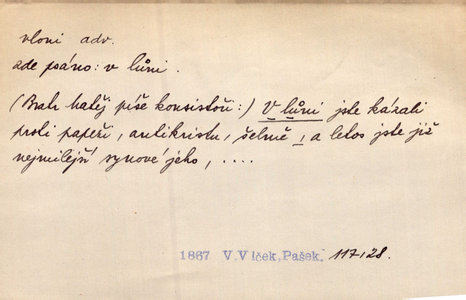 vloni adv.
zde psáno: v lůni.
(Brah Matěj píše konsistoři:) V lůni jste kázali
proti papeži, antikristu, šelmě, a letos jste již
nejmilejší synové jeho, ....
1867 V. Vlček, Pašek. 117,28.